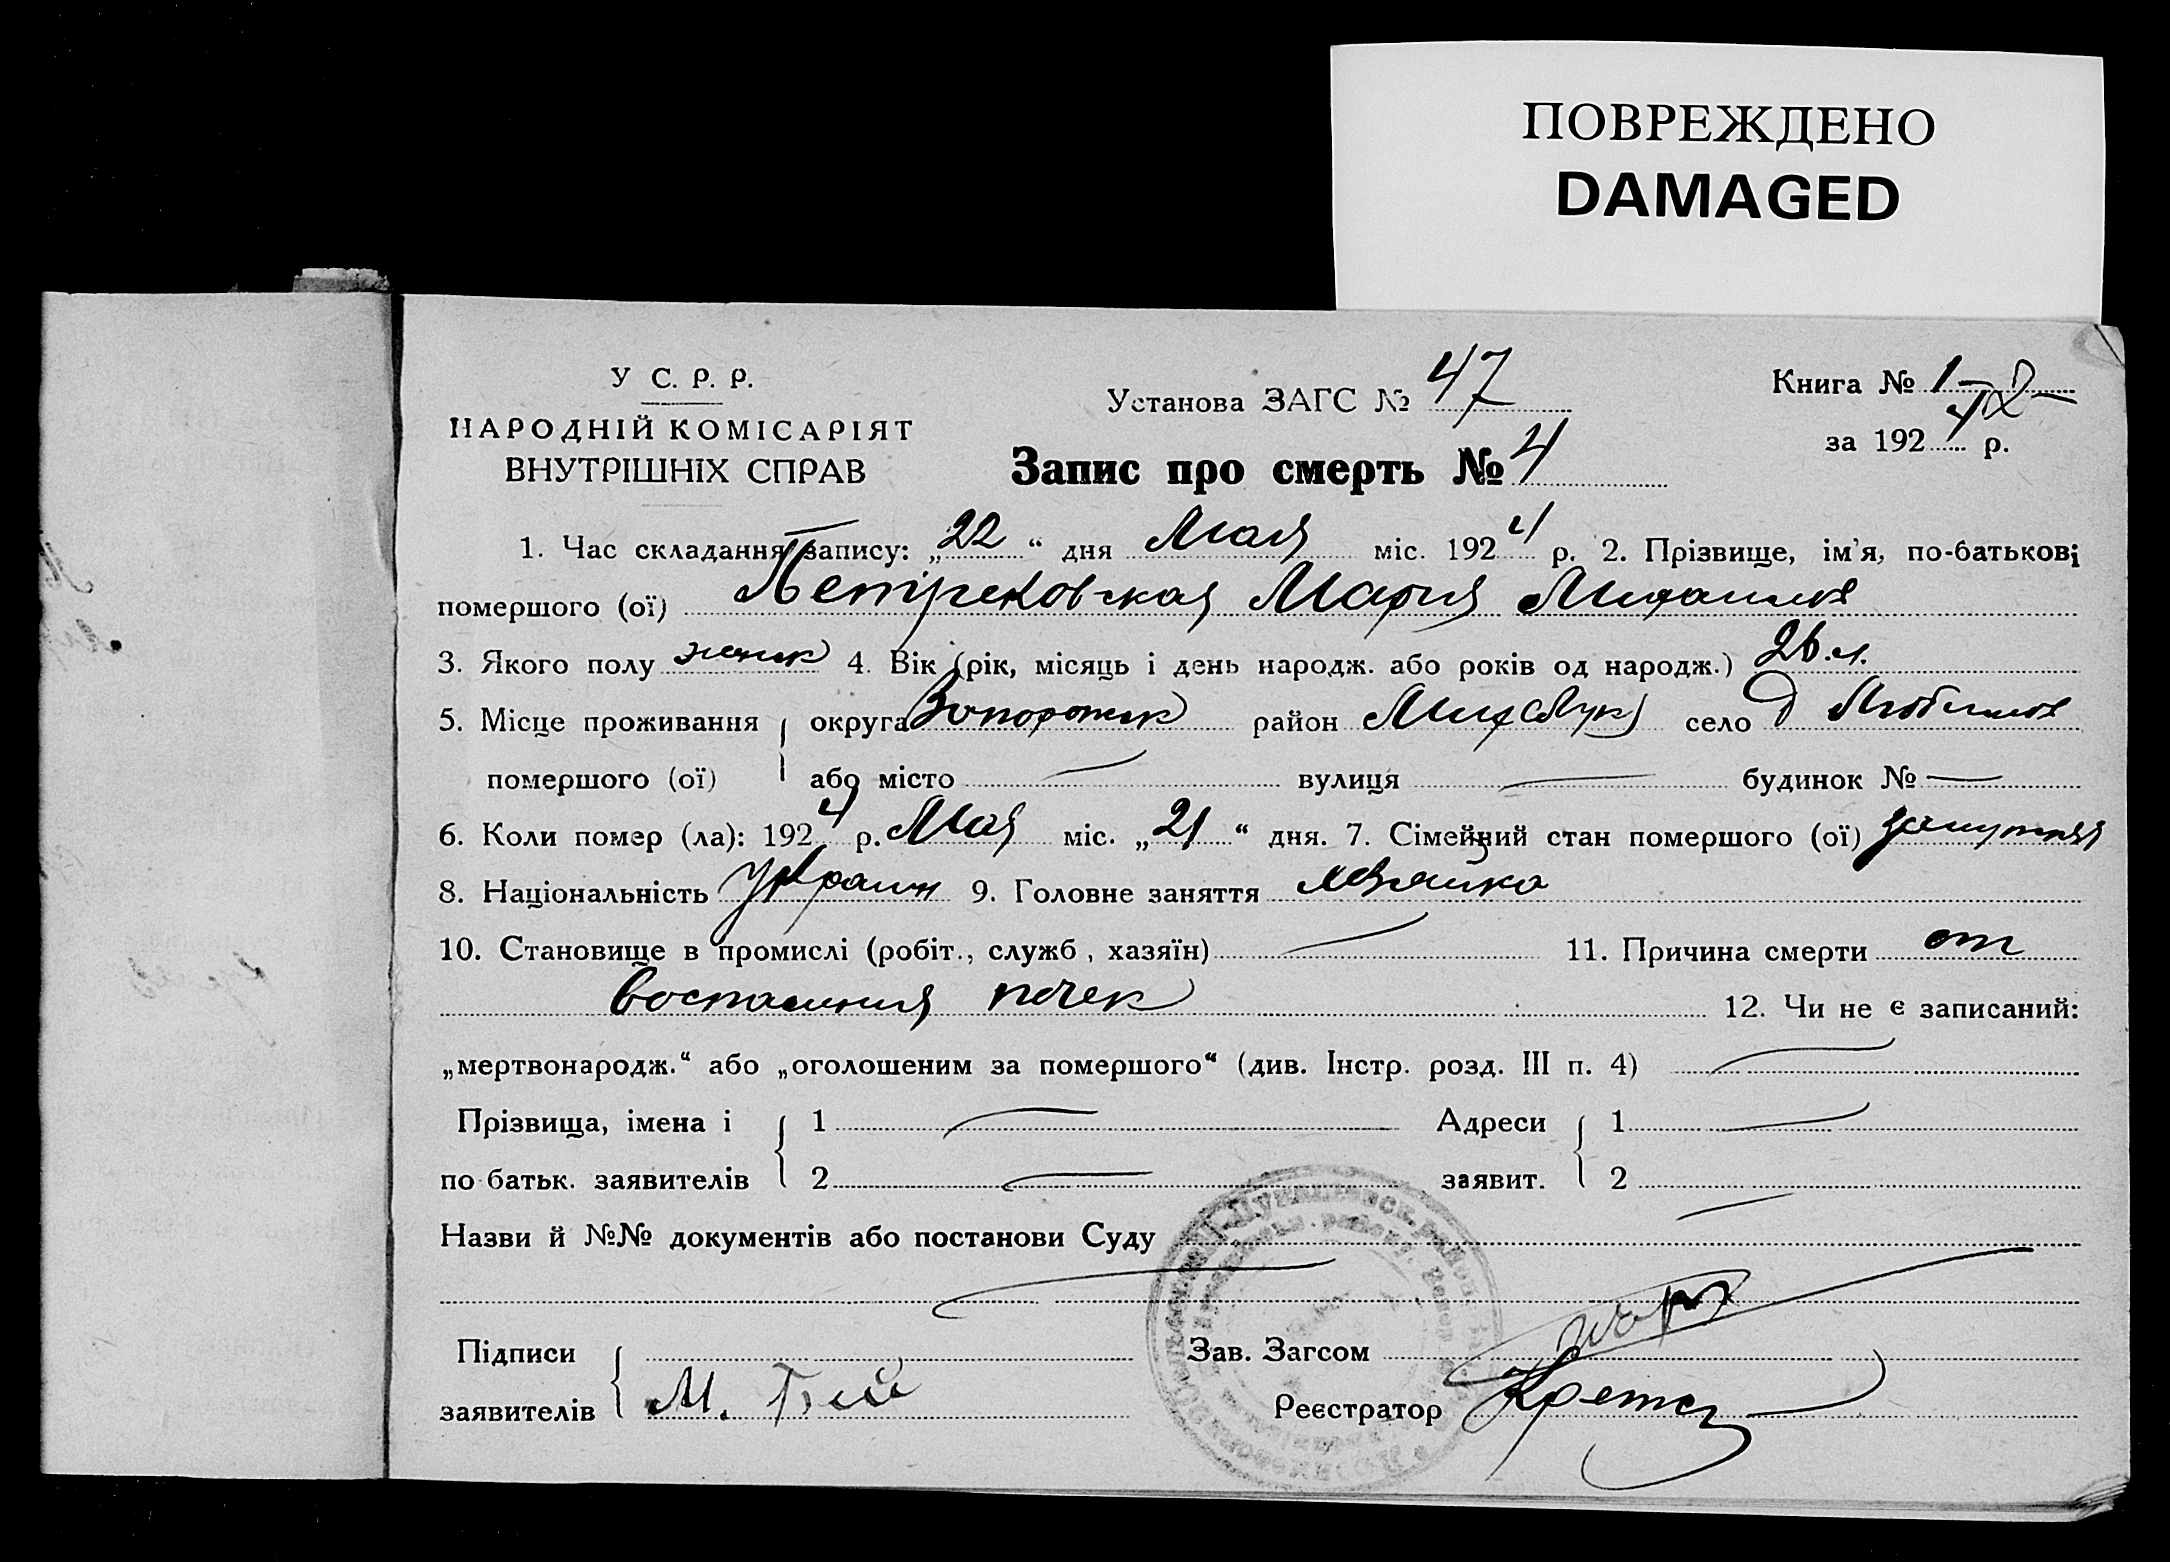 ПОВРЕЖДЕНО
DAMAGED
У С. Р. Р.
НАРОДНІЙ КОМІСАРІЯТ
ВНУТРІШНІХ СПРАВ
Установа ЗАГС № 47
Книга № 1
за 1924 р.
Запис про смерть № 4
1. Час складання запису: „22“ дня Мая міс. 1924 р. 2. Прізвище, ім'я, по-батькові
помершого (ої) Мария
3. Якого полу женск 4. Вік (рік, місяць і день народж. або років од народж.) 26 л.
5. Місце проживання { округа Запорожск район село
помершого (ої) або місто — вулиця — будинок № —
6. Коли помер (ла): 1924 р. Мая міс. „21“ дня. 7. Сімейний стан помершого (ої)
8. Національність Украин 9. Головне заняття
10. Становище в промислі (робіт., служб , хазяїн) — 11. Причина смерти от
воспаления почек 12. Чи не є записаний:
„мертвонародж.“ або „оголошеним за помершого“ (див. Інстр. розд. III п. 4) —
Прізвища, імена і { 1 — Адреси { 1 —
по батьк. заявителів 2 — заявит. 2 —
Назви й №№ документів або постанови Суду
—
Підписи { Зав. Загсом
заявителів М. Реєстратор